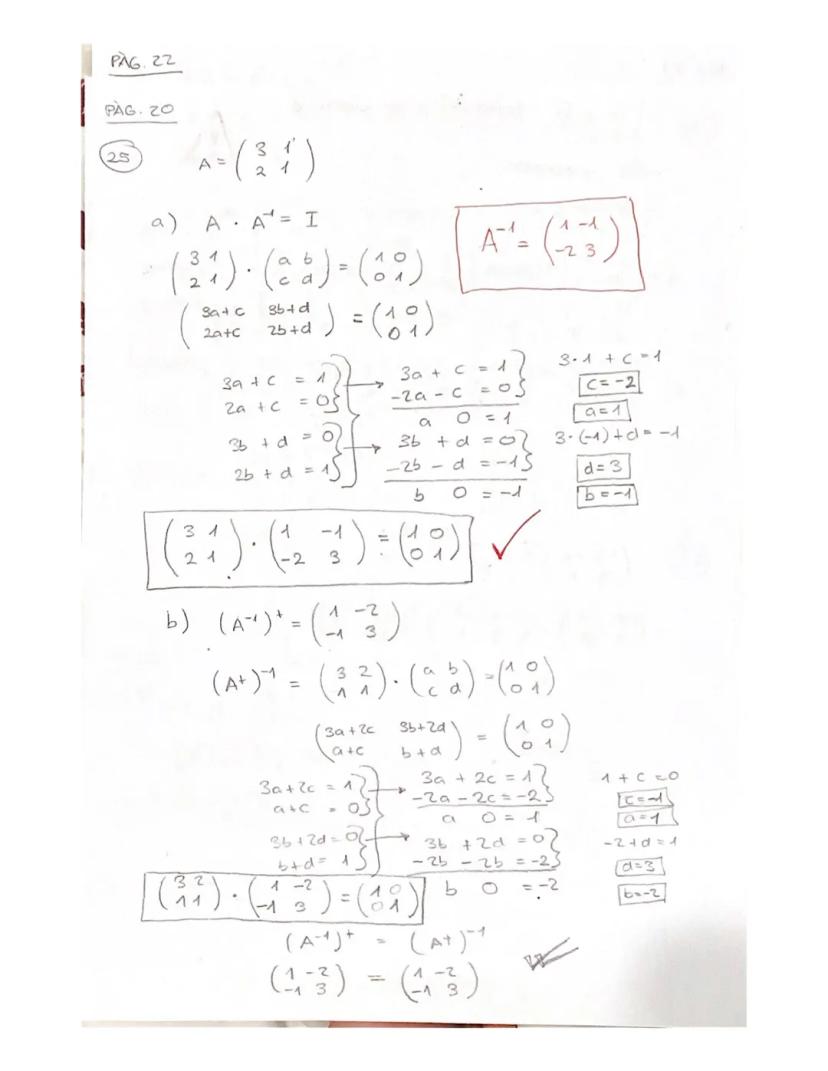 PÀG. 22
PÀG. 20
25
A = ( 3 1
2 1 )
a) A · A⁻¹ = I
A⁻¹ = ( 1 -1
-2 3 )
( 3 1
2 1 ) · ( a b
c d ) = ( 1 0
0 1 )
( 3a+c 3b+d
2a+c 2b+d ) = ( 1 0
0 1 )
3a + c = 1
2a + c = 0
3b + d = 0
2b + d = 1
3a + c = 1
-2a - c = 0
a 0 = 1
3b + d = 0
-2b - d = -1
b 0 = -1
3·1 + c = 1
c = -2
a = 1
3·(-1)+d = -1
d = 3
b = -1
( 3 1
2 1 ) · ( 1 -1
-2 3 ) = ( 1 0
0 1 )
b) (A⁻¹)ᵗ = ( 1 -2
-1 3 )
(Aᵗ)⁻¹ = ( 3 2
1 1 ) · ( a b
c d ) = ( 1 0
0 1 )
( 3a+2c 3b+2d
a+c b+d ) = ( 1 0
0 1 )
3a+2c = 1
a+c = 0
3b+2d = 0
b+d = 1
3a + 2c = 1
-2a - 2c = -2
a 0 = 1
3b + 2d = 0
-2b - 2b = -2
b 0 = -2
1 + c = 0
c = -1
a = 1
-2+d = 1
d = 3
b = -2
( 3 2
1 1 ) · ( 1 -2
-1 3 ) = ( 1 0
0 1 )
(A⁻¹)ᵗ = (Aᵗ)⁻¹
( 1 -2
-1 3 ) = ( 1 -2
-1 3 )